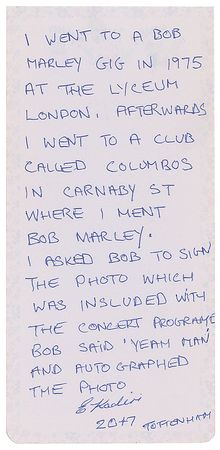 I WENT TO A BOB
MARLEY GIG IN 1975
AT THE LYCEUM
LONDON. AFTERWARDS
I WENT TO A CLUB
CALLED COLUMBOS
IN CARNABY ST
WHERE I MENT
BOB MARLEY.
I ASKED BOB TO SIGN
THE PHOTO WHICH
WAS INSLUDED WITH
THE CONCERT PROGRAME
BOB SAID 'YEAH MAN'
AND AUTOGRAPHED
THE PHOTO.
TOTTENHAM